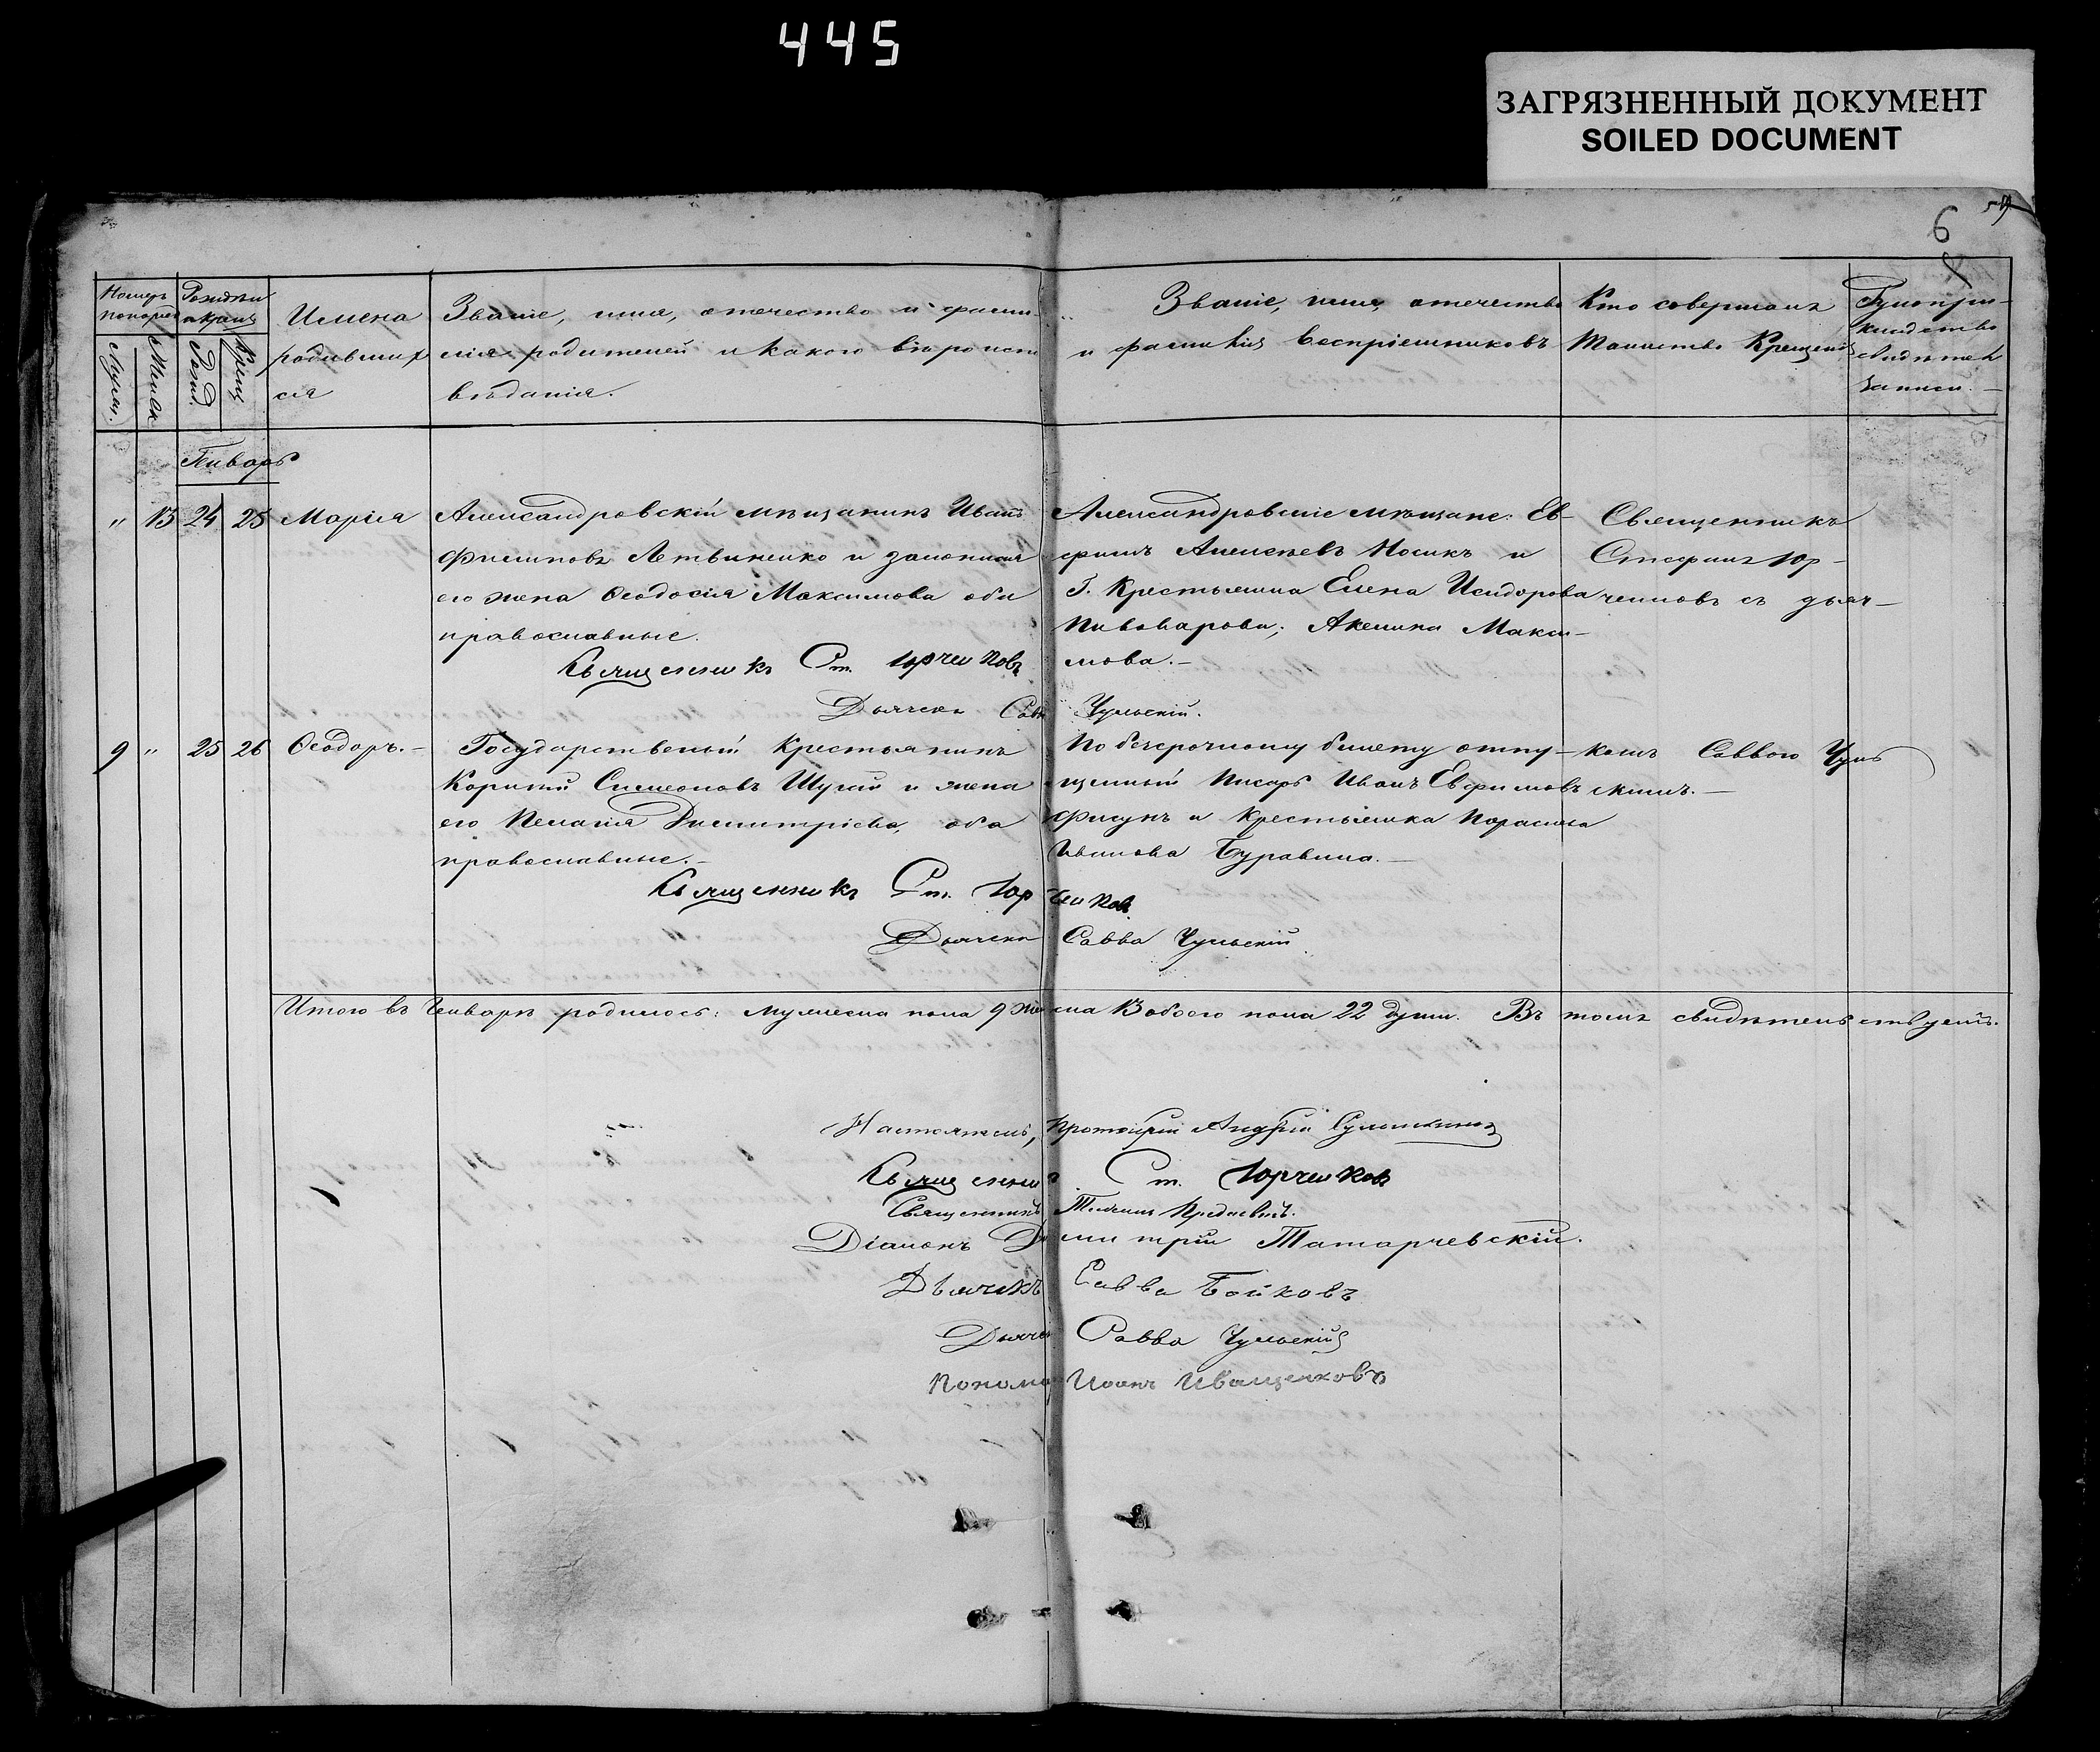 445
ЗАГРЯЗНЕННЫЙ ДОКУМЕНТ
SOILED DOCUMENT
6
Имена
родивших
ся
Званіе, имя, отечество и фами-
лія родителей и какого вѣроиспо
вѣданія.
Званіе, имя, отечество
и фамилія воспріемниковъ
Кто совершалъ
Таинство Крещенія
Рукопри-
кладство
свидѣтел
записи.
Генварь
" 13 24 25 Марія
Александровскій мѣщанинъ Иванъ
Филиповъ Летвиненко и законная
его жена Ѳеодосія Максимова оба
православные.
Священникъ Ст. Юрченковъ
Дьячекъ Савва Чульскій.
Александровскіе мѣщане: Ев-
фимъ Алексѣевъ Носикъ и
Г. Крестьянка Елена Исидорова
Пивоварова; Акелина Макси-
мова.-
Священникъ
Стефанъ Юр-
ченковъ съ дьяч-
9 " 25 26 Ѳеодоръ.-
Государственый Крестьянинъ
Корнилій Симеоновъ Шугай и жена
его Пелагія Димитріева, оба
православные.-
Священникъ Ст. Юрченковъ
Дьячекъ Савва Чульскій
По безсрочному билету отпу-
щенный Писарь Иванъ Евфимовъ
Фисунъ и Крестьянка Параскева
Иванова Буравина.-
комъ Саввою Чуль
скимъ.-
Итого въ Генварѣ родилось: мужеска пола 9 женска 13 обоего пола 22 души. Въ томъ свидѣтельствуемъ.
Настоятель, Протоіерей Андрей
Священникъ Ст. Юрченковъ
Священникъ
Діаконъ Димитрій Татарчевскій.
Дьячекъ Савва Бойковъ
Дьячекъ Савва Чульскій
Пономарь Иоанъ Иващенковъ